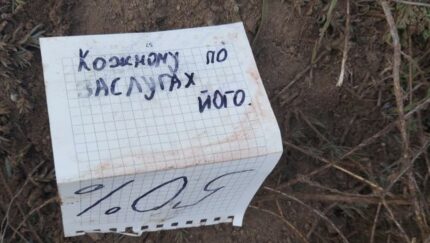 Кожному по
ЗАСЛУГАХ
його.
50%